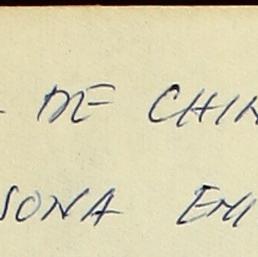 DE CHIR
SONA EMI